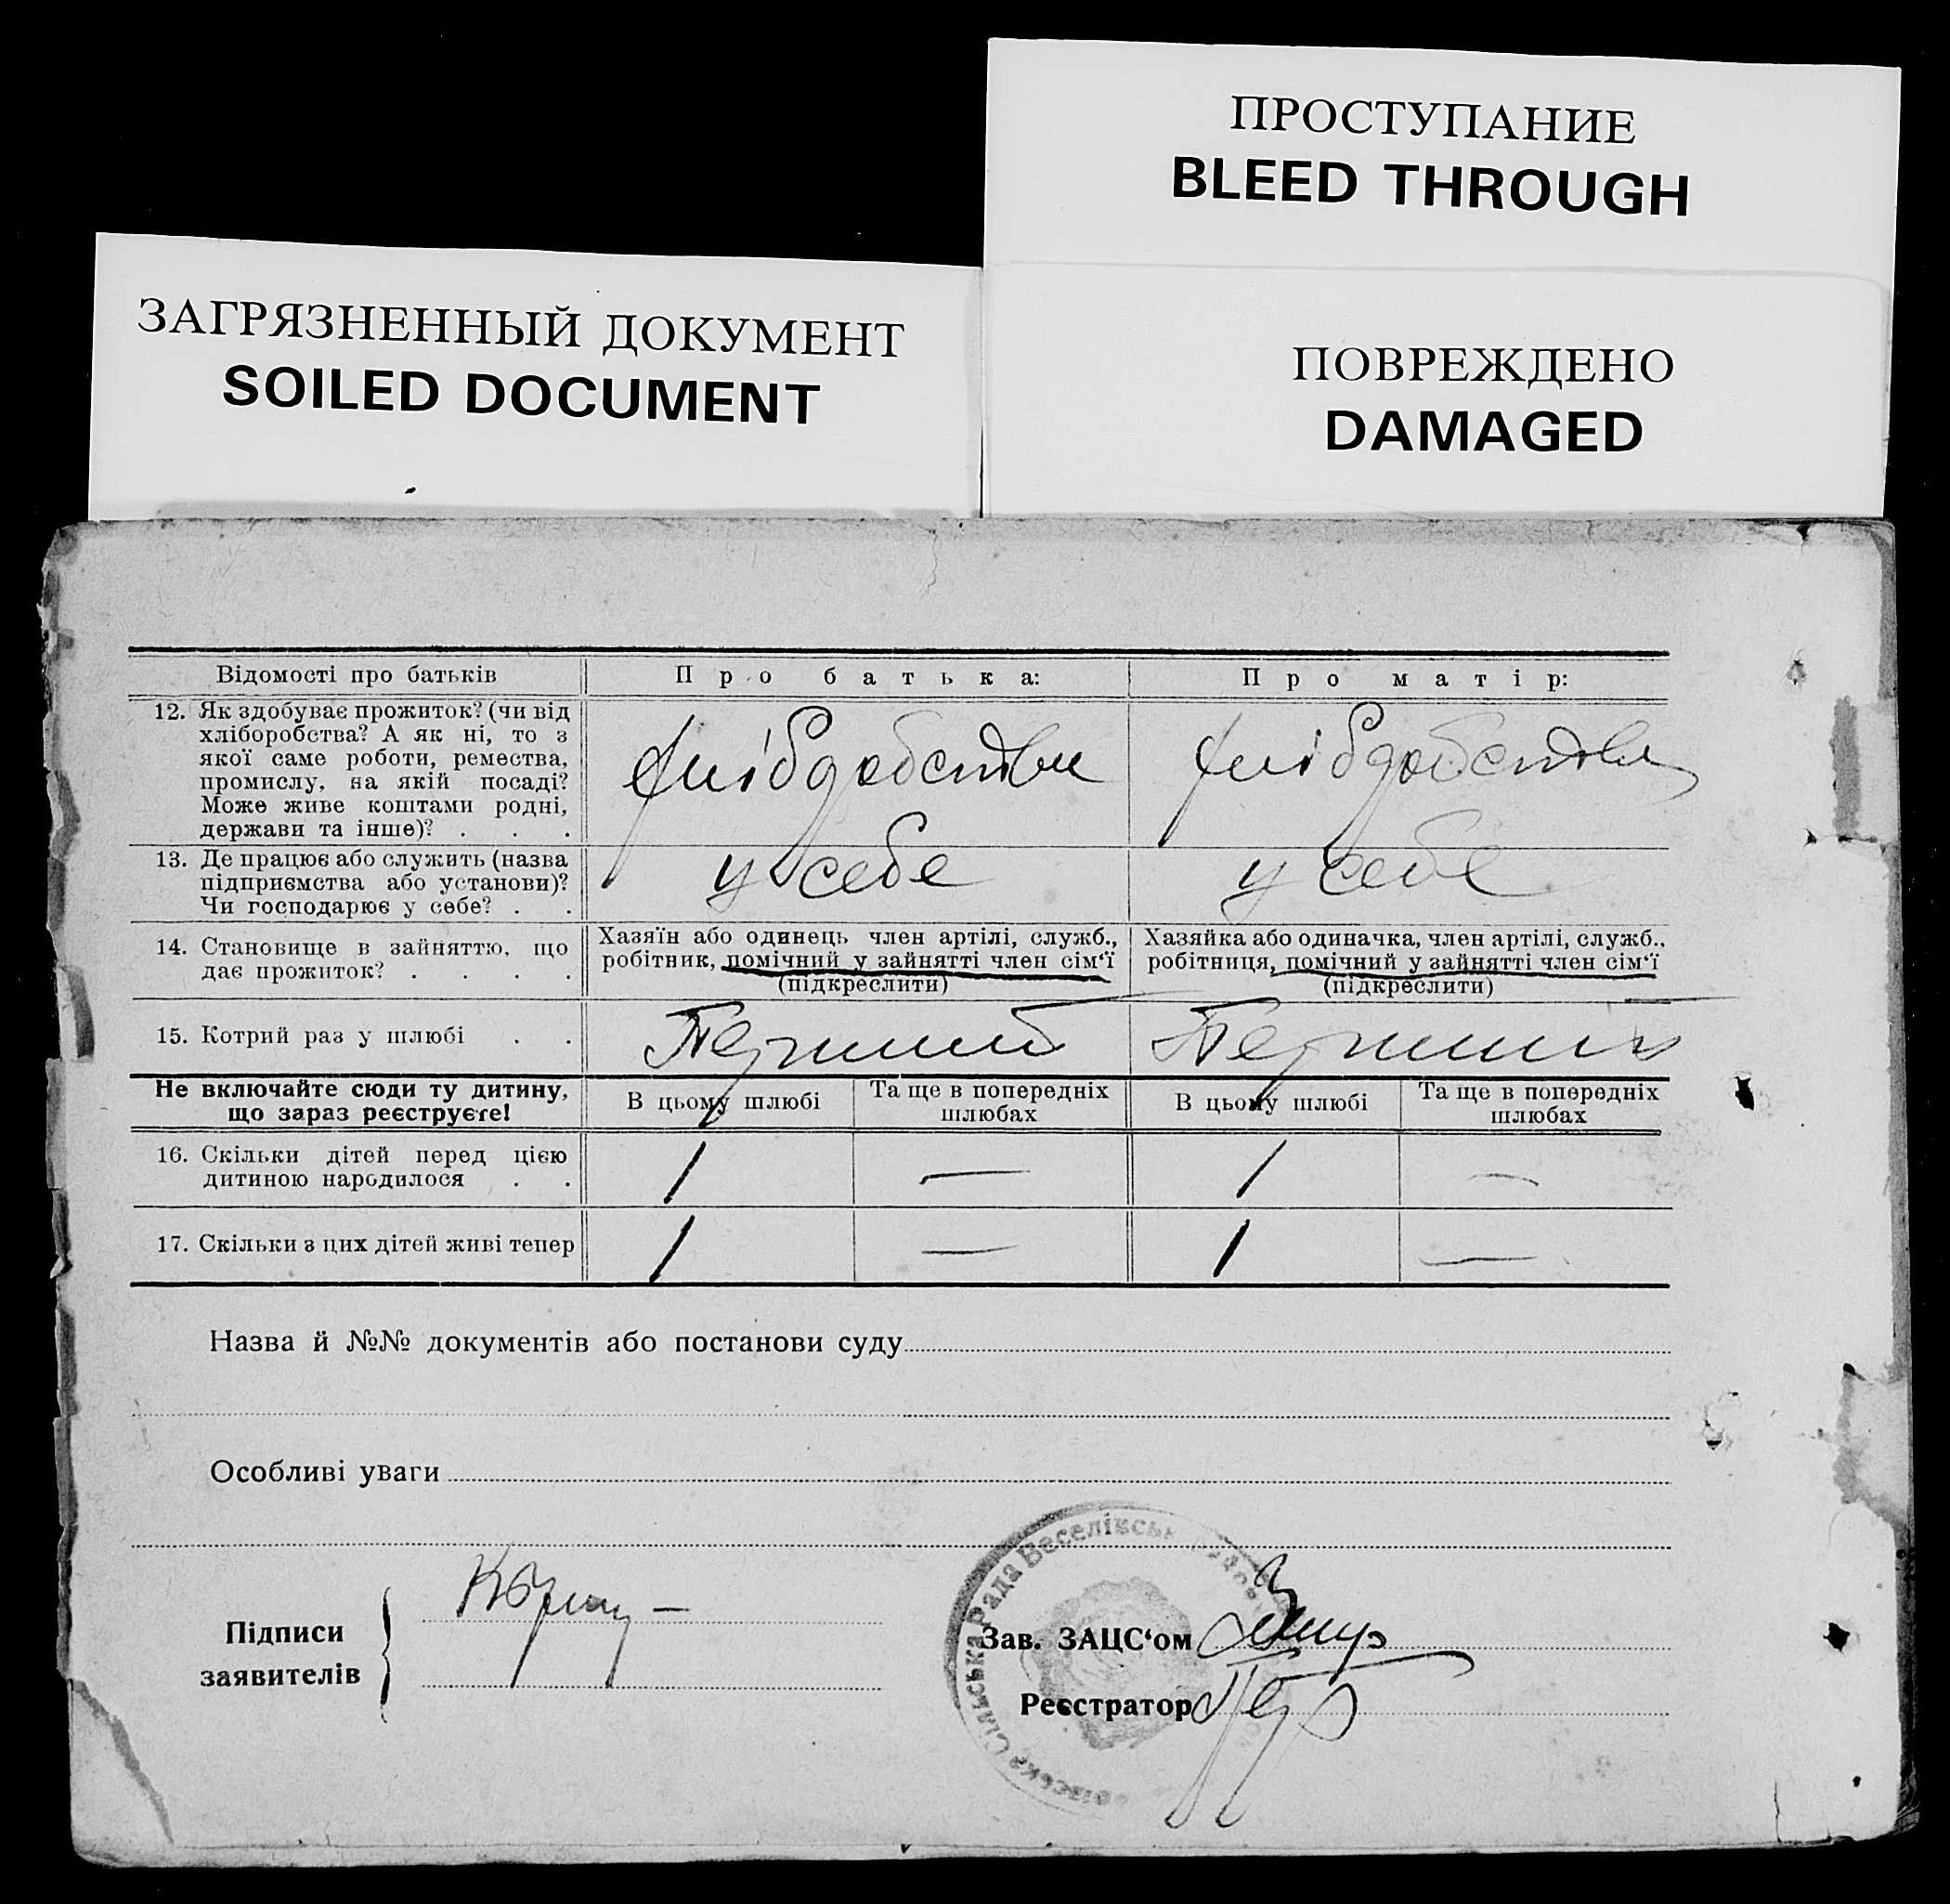 ПРОСТУПАНИЕ
BLEED THROUGH
ЗАГРЯЗНЕННЫЙ ДОКУМЕНТ
SOILED DOCUMENT
ПОВРЕЖДЕНО
DAMAGED
Відомості про батьків
Про батька:
Про матір:
12. Як здобуває прожиток? (чи від
хліборобства? А як ні, то з
якої саме роботи, ремества,
промислу, на якій посаді?
Може живе коштами родні,
держави та інше)? . . .
13. Де працює або служить (назва
підприємства або установи)?
Чи господарює у себе? . .
у себе
у себе
14. Становище в зайняттю, що
дає прожиток? . . . .
Хазяїн або одинець член артілі, служб.,
робітник, помічний у зайнятті член сім‘ї
(підкреслити)
Хазяйка або одиначка, член артілі, служб.,
робітниця, помічний у зайнятті член сім‘ї
(підкреслити)
15. Котрий раз у шлюбі . .
Перший
Перший
Не включайте сюди ту дитину,
що зараз реєструєте!
В цьому шлюбі
Та ще в попередніх
шлюбах
В цьому шлюбі
Та ще в попередніх
шлюбах
16. Скільки дітей перед цією
дитиною народилося . .
1 — 1 —
17. Скільки з цих дітей живі тепер
1 — 1 —
Назва й №№ документів або постанови суду
Особливі уваги
Підписи
заявителів
Сільська Рада Веселівськ
Зав. ЗАЦС‘ом
Реєстратор